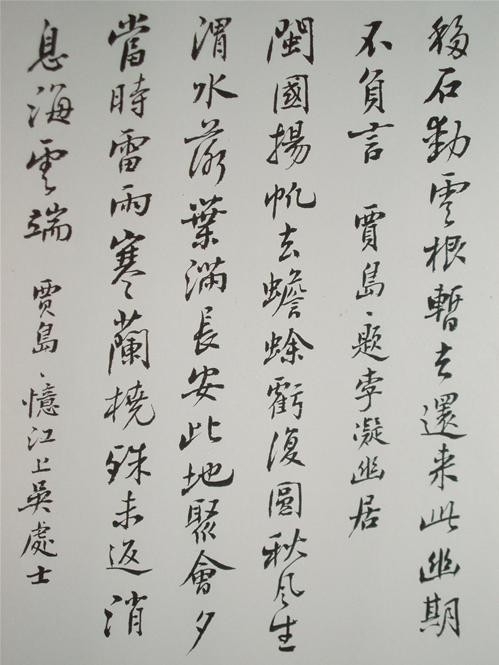 移石動雲根暫去還来此幽期
不負言 賈島、題李凝幽居
閩國揚帆去蟾蜍虧復圓秋風生
渭水落葉滿長安此地聚會夕
當時雷雨寒蘭橈殊未返消
息海雲端 賈島、憶江上吳處士